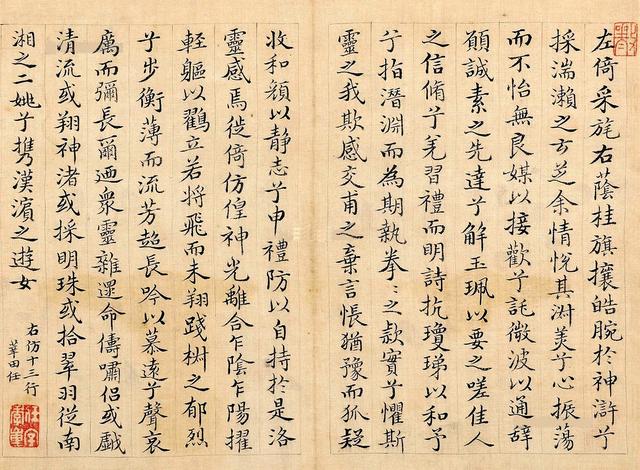 左倚采旄右蔭桂旗攘皓腕於神滸兮
採湍瀨之玄芝余情悅其淑美兮心振蕩
而不怡無良媒以接歡兮託微波以通辭
願誠素之先達兮解玉珮以要之嗟佳人
之信脩兮羌習禮而明詩抗瓊珶以和予
兮指潛淵而為期執拳〻之款實兮懼斯
靈之我欺感交甫之棄言悵猶豫而狐疑
收和顏以静志兮申禮防以自持於是洛
靈感焉徙倚仿偟神光離合乍陰乍陽擢
輊軀以鸖立若將飛而未翔踐椒之郁烈
兮步衡薄而流芳超長吟以慕遠兮聲哀
厲而彌長爾迺衆靈雜遝命儔嘯侶或戲
清流或翔神渚或採明珠或拾翠羽從南
湘之二姚兮携漢濱之遊女
右仿十三行
莘田任